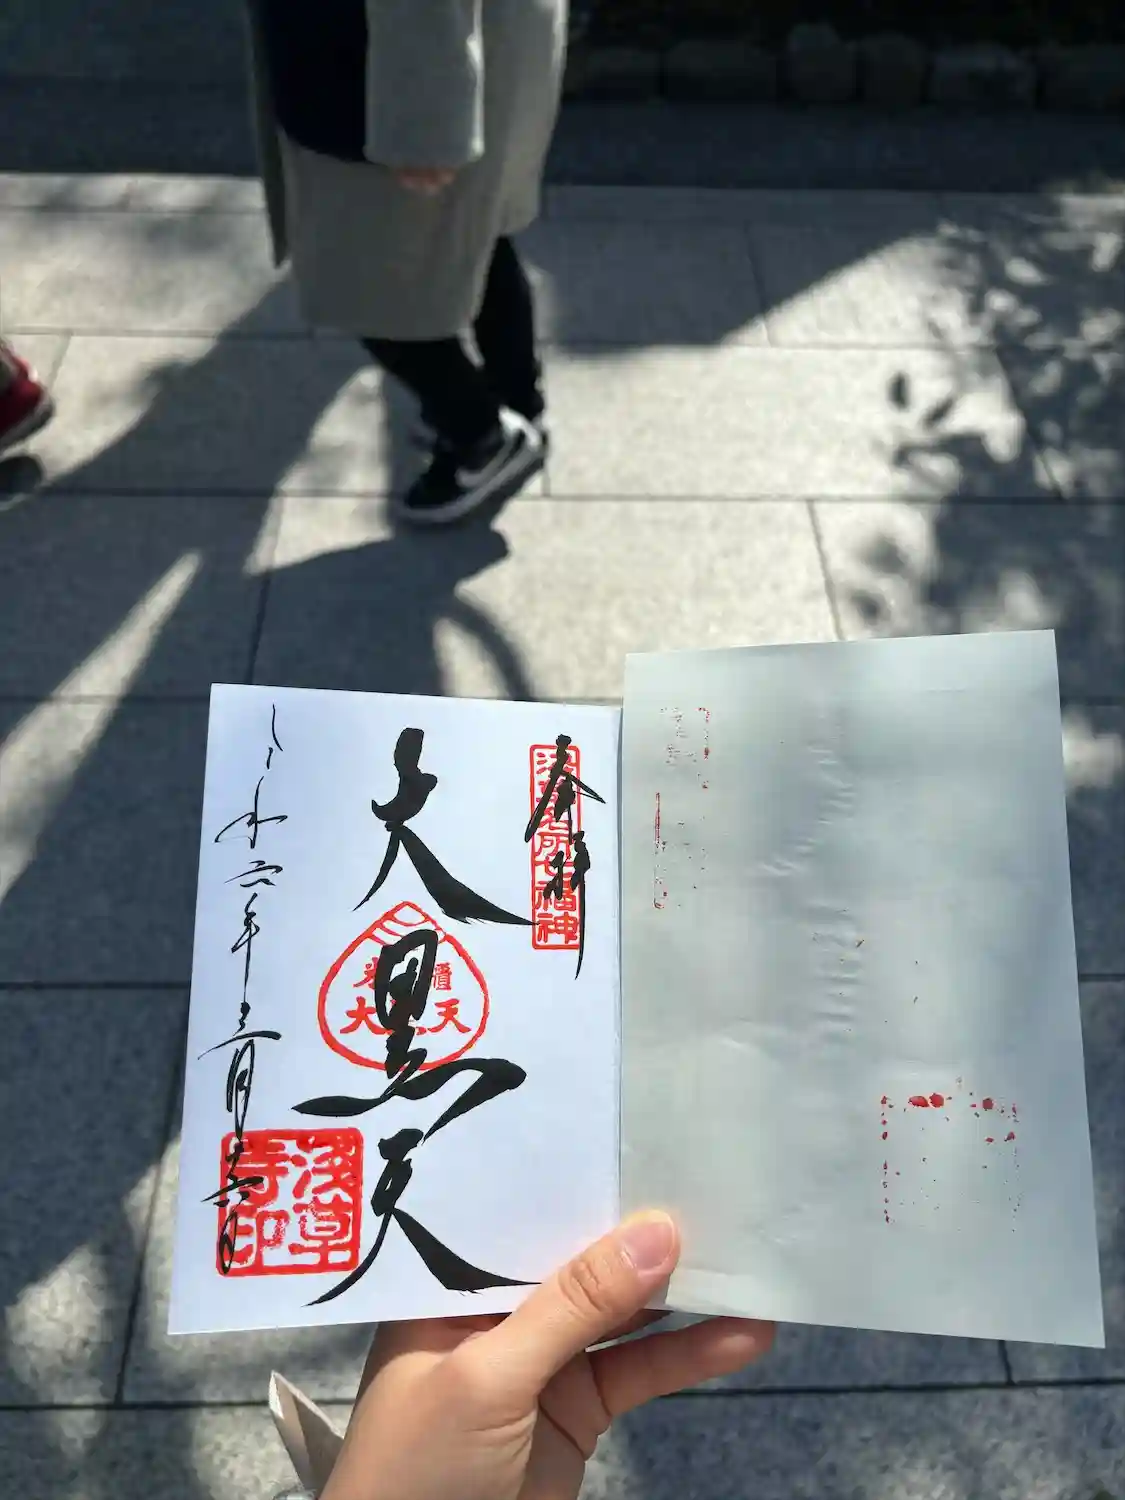 奉拝
浅草名所七福神
大黒天
令和六年三月十六日
浅草寺印